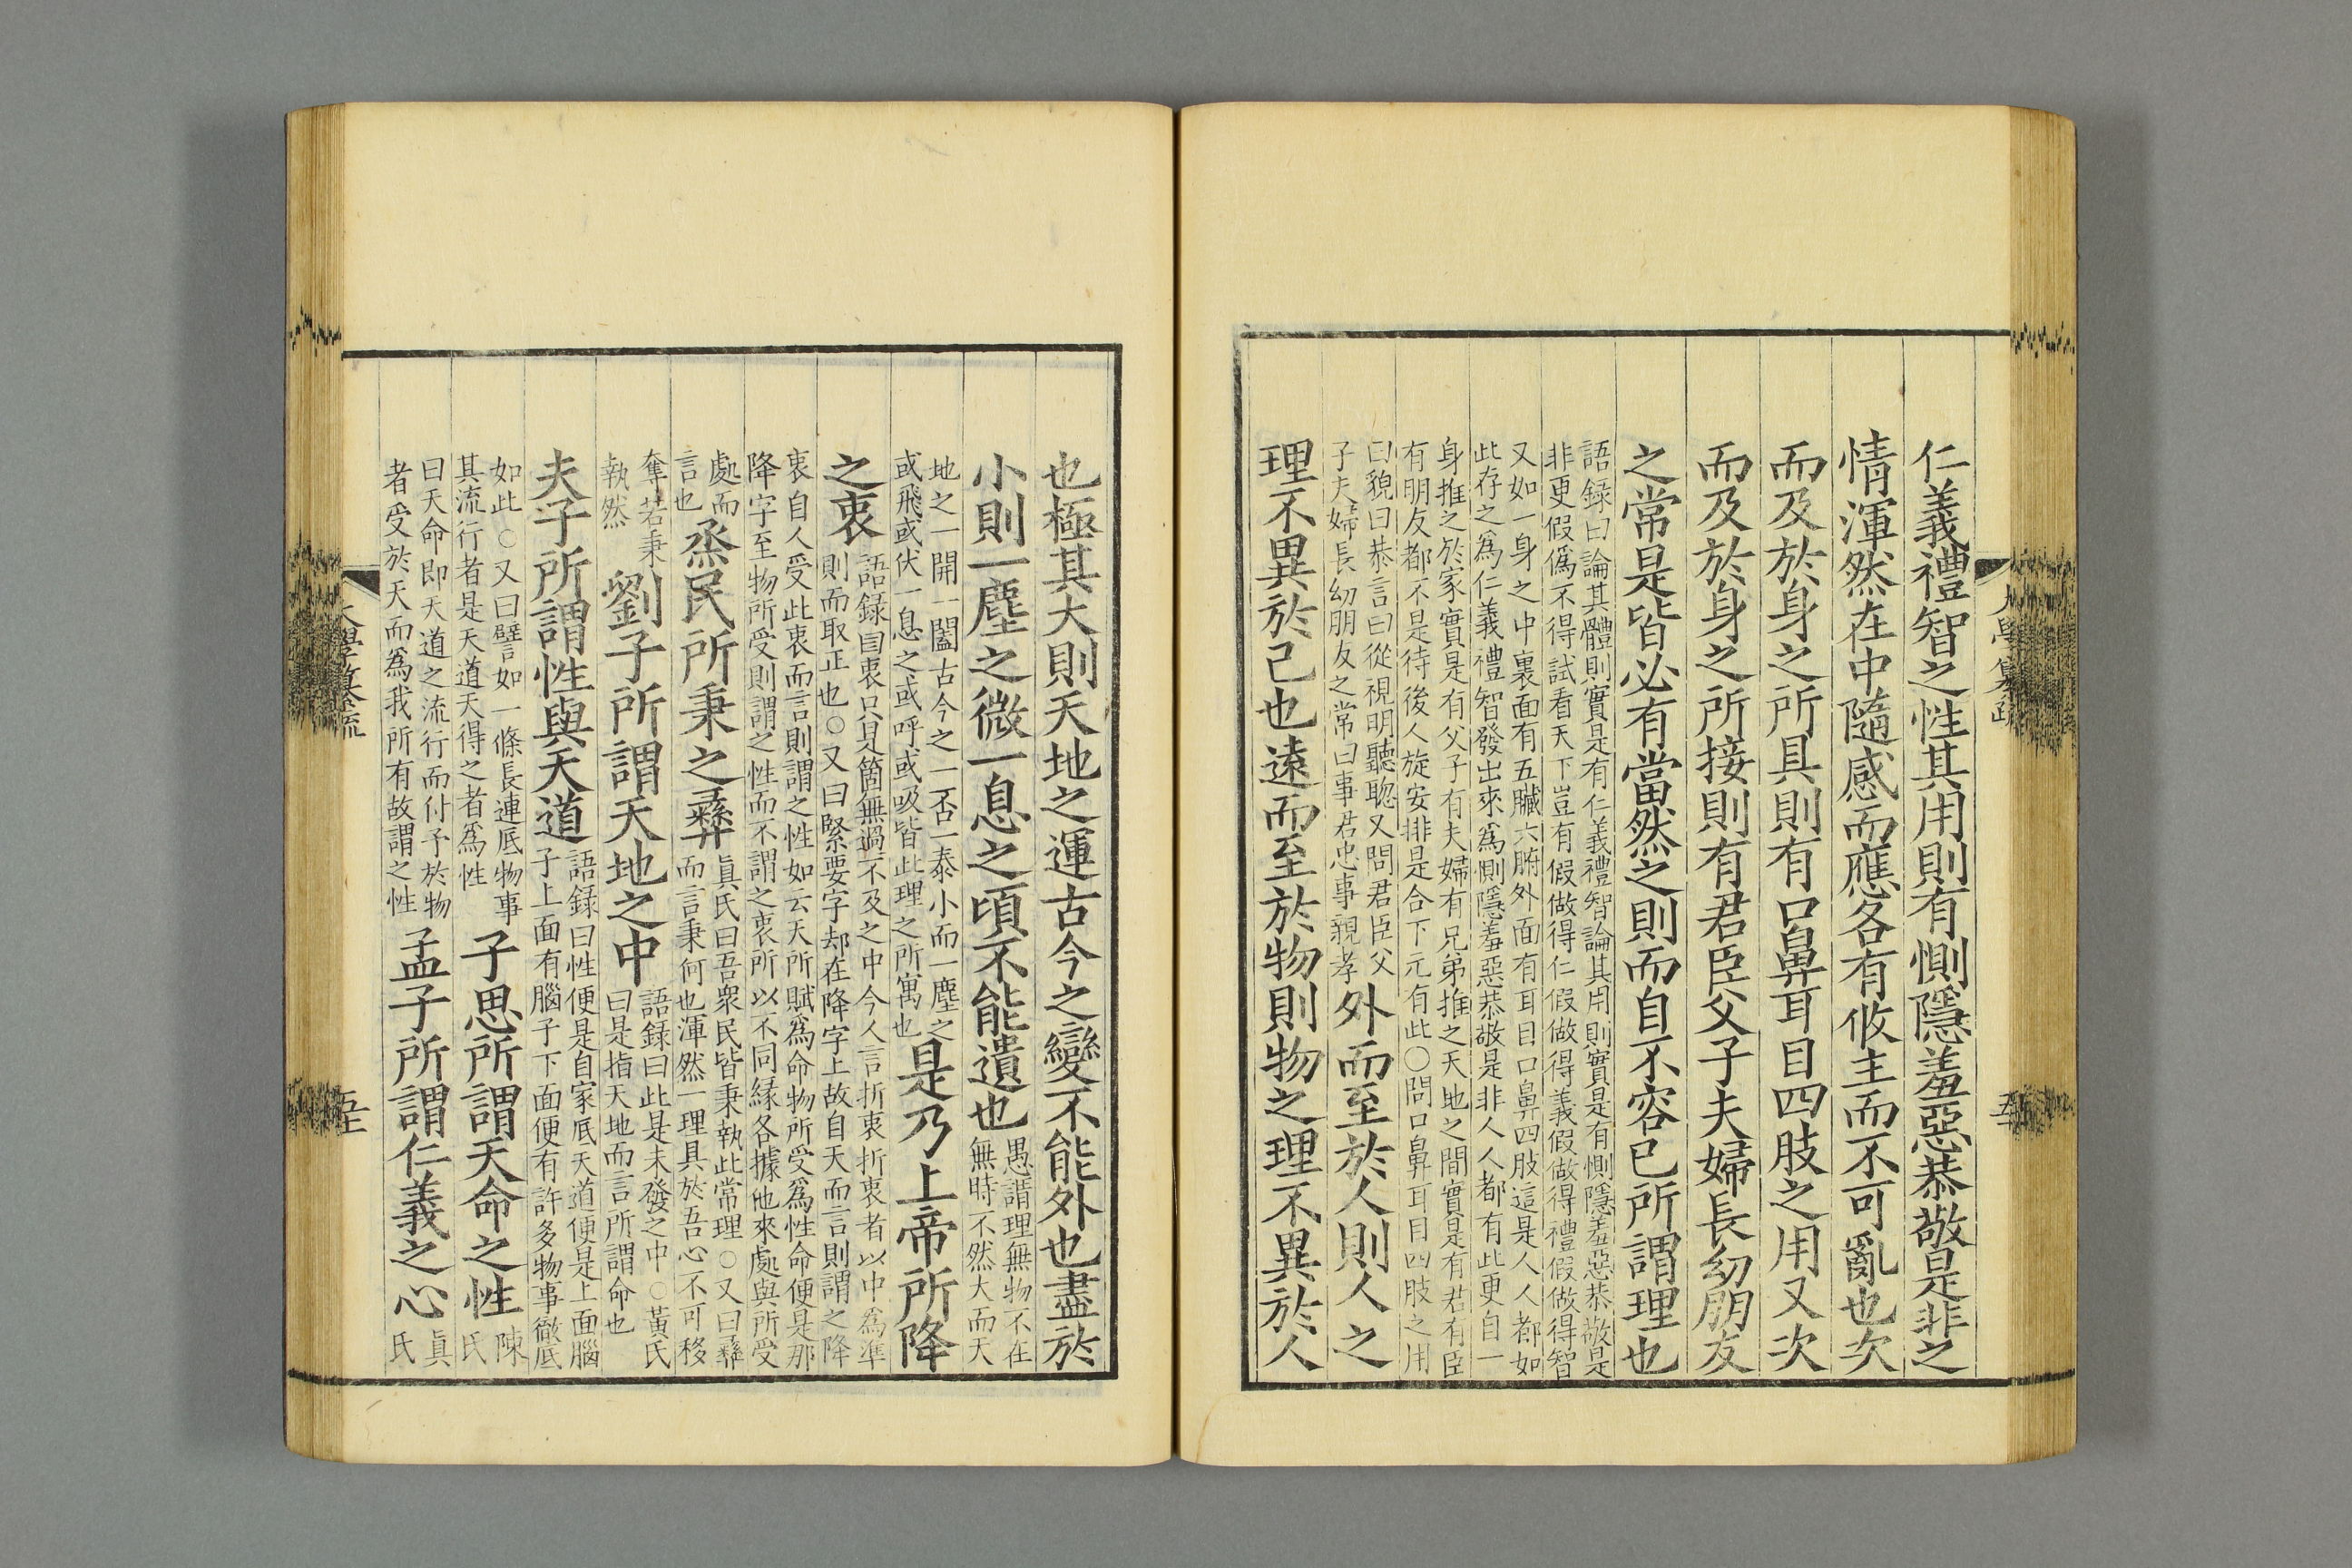 仁義禮智之性其用則有惻隱羞惡恭敬是非之
情渾然在中隨感而應各有攸主而不可亂也次
而及於身之所具則有口鼻耳目四肢之用又次
而及於身之所接則有君臣父子夫婦長幼朋友
之常是皆必有當然之則而自不容已所謂理也
語録曰論其體則實是有仁義禮智論其用則實是有惻隱羞惡恭敬是
非更假僞不得試看天下豈有假做得仁假做得義假做得禮假做得智
又如一身之中裏面有五臟六腑外面有耳目口鼻四肢這是人人都如
此存之爲仁義禮智發出來爲惻隱羞惡恭敬是非人人都有此更自一
身推之於家實是有父子有夫婦有兄弟推之天地之間實是有君有臣
有朋友都不是待後人旋安排是合下元有此○問口鼻耳目四肢之用
曰貌曰恭言曰從視明聽聦又問君臣父
子夫婦長幼朋友之常曰事君忠事親孝
外而至於人則人之
理不異於己也遠而至於物則物之理不異於人
大學纂疏
也極其大則天地之運古今之變不能外也盡於
小則一塵之微一息之頃不能遺也
愚謂理無物不在
無時不然大而天
地之一開一闔古今之一否一泰小而一塵之
或飛或伏一息之或呼或吸皆此理之所寓也
是乃上帝所降
之衷
語録曰衷只是箇無過不及之中今人言折衷折衷者以中爲準
則而取正也○又曰緊要字却在降字上故自天而言則謂之降
衷自人受此衷而言則謂之性如云天所賦爲命物所受爲性命便是那
降字至物所受則謂之性而不謂之衷所以不同緣各據他來處與所受
處而
言也
烝民所秉之彞
眞氏曰吾衆民皆秉執此常理○又曰彞
而言秉何也渾然一理具於吾心不可移
奪若秉
執然
劉子所謂天地之中
語録曰此是未發之中○黃氏
曰是指天地而言所謂命也
夫子所謂性與天道
語録曰性便是自家底天道便是上面腦
子上面有腦子下面便有許多物事徹底
如此○又曰譬如一條長連底物事
其流行者是天道天得之者爲性
子思所謂天命之性
陳
氏
曰天命即天道之流行而付予於物
者受於天而爲我所有故謂之性
孟子所謂仁義之心
眞
氏
大學纂疏